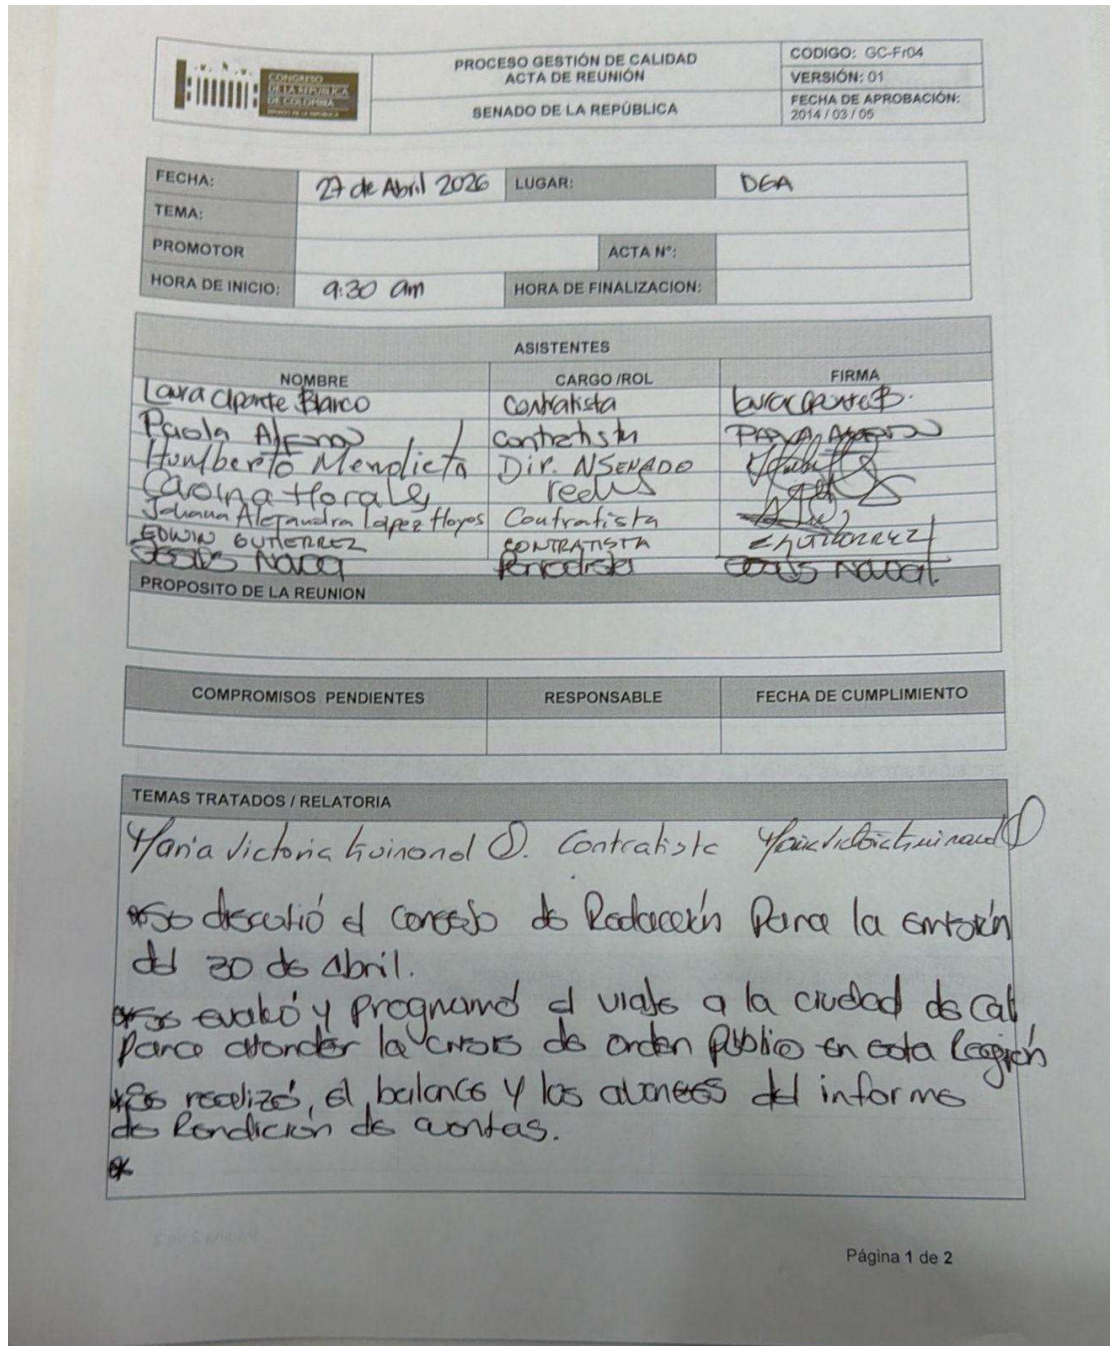 CONGRESO
DE LA REPÚBLICA
DE COLOMBIA
PROCESO GESTIÓN DE CALIDAD
ACTA DE REUNIÓN
SENADO DE LA REPÚBLICA
CODIGO: GC-Fr04
VERSIÓN: 01
FECHA DE APROBACIÓN:
2014 / 03 / 05
FECHA: 27 de Abril 2026 LUGAR: DGA
TEMA:
PROMOTOR ACTA N°:
HORA DE INICIO: 9:30 am HORA DE FINALIZACION:
ASISTENTES
NOMBRE CARGO /ROL FIRMA
Laura Aponte Blanco Contratista Laura Aponte B.
Paola Alfonso Contratista Paola Alfonso
Humberto Mendieta Dir. NSENADO
Carolina Morales redes
Johana Alejandra López Hoyos Contratista
EDWIN GUTIERREZ CONTRATISTA EGUTIERREZ
Periodista
PROPOSITO DE LA REUNION
COMPROMISOS PENDIENTES RESPONSABLE FECHA DE CUMPLIMIENTO
TEMAS TRATADOS / RELATORIA
Maria Victoria Guinand Contratista Maria Victoria Guinand
*Se discutió el Consejo de Redacción Para la emisión
del 30 de Abril.
*Se evaluó y Programó el viaje a la ciudad de Cali
Para atender la crisis de orden Público en esta Región
*Se realizó, el balance y los alcances del informe
de Rendición de cuentas.
*
Página 1 de 2